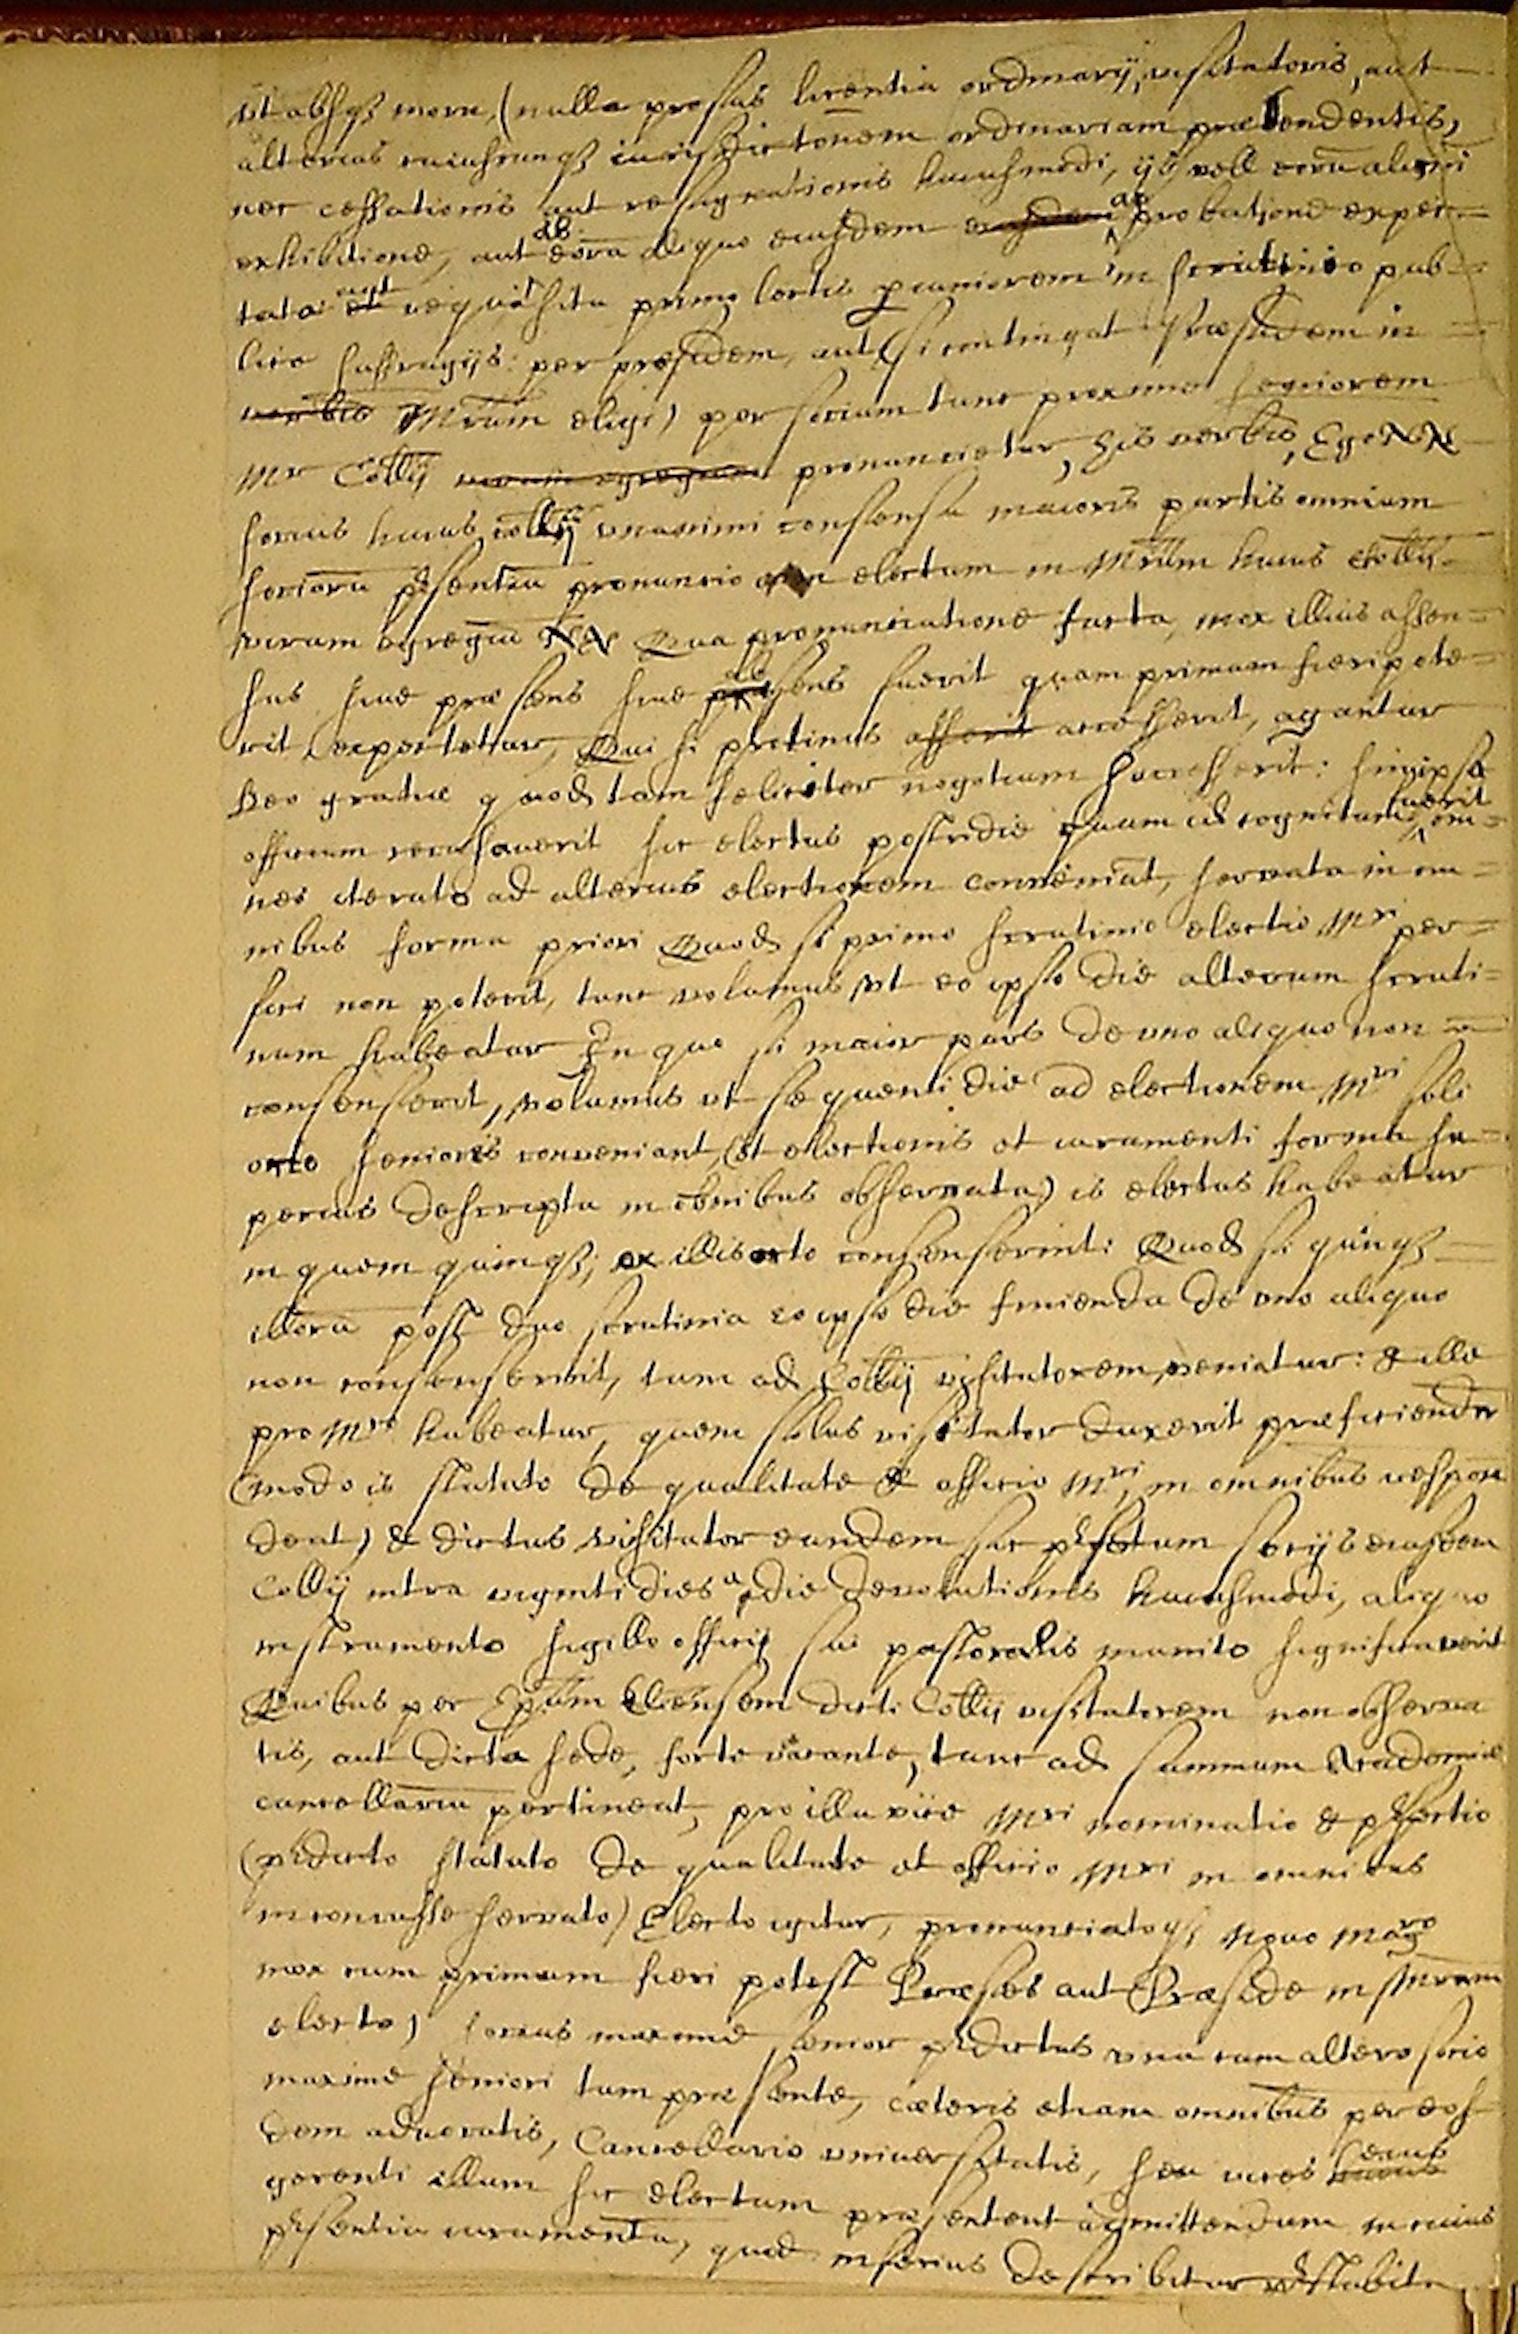 ut absqz mora, (nulla prorsus licentia ordinarij, visitatoris, aut
alterius cuiuscunqz iurisdictionem ordinariam prætendentis,
nec cessationis aut resignationis huiusmodi, ijs vell eorū alicui
exhibitione, aut ab eorū aliquo eiusdem eiusdem approbatione expec-
tata et aut requisita primo sortis in scrutinio pub-
lico suffragijs: per præsidem, aut (si contingat Præsidem in
verbis Mrūm eligi) per socium tunc proximo seniorem
Mr Collij virum egregium pronuncietur, his verbis, Ego NN
socius huius collij unanimi consensu maioris partis omnium
sociorū pñsentiū pronuncio electum in Mrūm huius Collij
virum egregiū NN Qua pronunciatione facta, mox illius assen-
sus sive præsens sive absens fuerit quam primum fieri pote-
rit expectetur, Qui si protinus assenserit accesserit, agantur
Deo gratiæ quod tam feliciter negotium successerit: sin ipse
officium recusaverit sic electus postridie quam id cognitum fuerit om-
nes iterato ad alterius electionem conveniāt, servata in om-
nibus forma priori Quod si primo scrutinio electio Mri per-
fici non poterit, tunc volumus ut eo ipso die alterum scruti-
nium habeatur In quo si maior pars de uno aliquo non
consenserit, volumus ut sequenti die ad electionem Mri soli
octo seniores conveniant, (et electionis et iuramenti forma su-
perius descripta in omnibus observata) is electus habeatur
in quem quinqz; ex illis octo consenserint: Quod si quinqz
illorū post duo scrutinia eo ipso die finienda de uno aliquo
non consenserint, tum ad Collij visitatorem veniatur: & ille
pro Mro habeatur, quem solus visitator duxerit præficiendū
(modo is statuto de qualitate & officio Mri, in omnibus respon
deat) & dictus visitator eundem sic pfectum socijs eiusdem
Collij intra viginti dies a die devolutionis huiusmodi, aliquo
instrumento sigillo officij sui pastoralis munito significaverit
Quibus per Epūm Eliensem dicti Collij visitatorem non observa
tis, aut dicta sede, forte vacante, tunc ad summum Academiæ
cancellariū pertineat, pro illa vice Mri nominatio & pfectio
(pdicto statuto de qualitate et officio Mri in omnibus
inconcusse servato) Electo igitur, pronunciatoqz novo Magro
mox cum primum fieri potest Præses aut (Præside in Mrum
electo) socius maxime senior pdictus una cum altero socio
maxime seniori tum præsente, cæteris etiam omnibus per eos-
dem advocatis, Cancellario universitatis, seu vices eius
gerenti illum sic electum præsentent admittendum in cuius
pñsentia iuramentū, quod inferius describitur pstabit